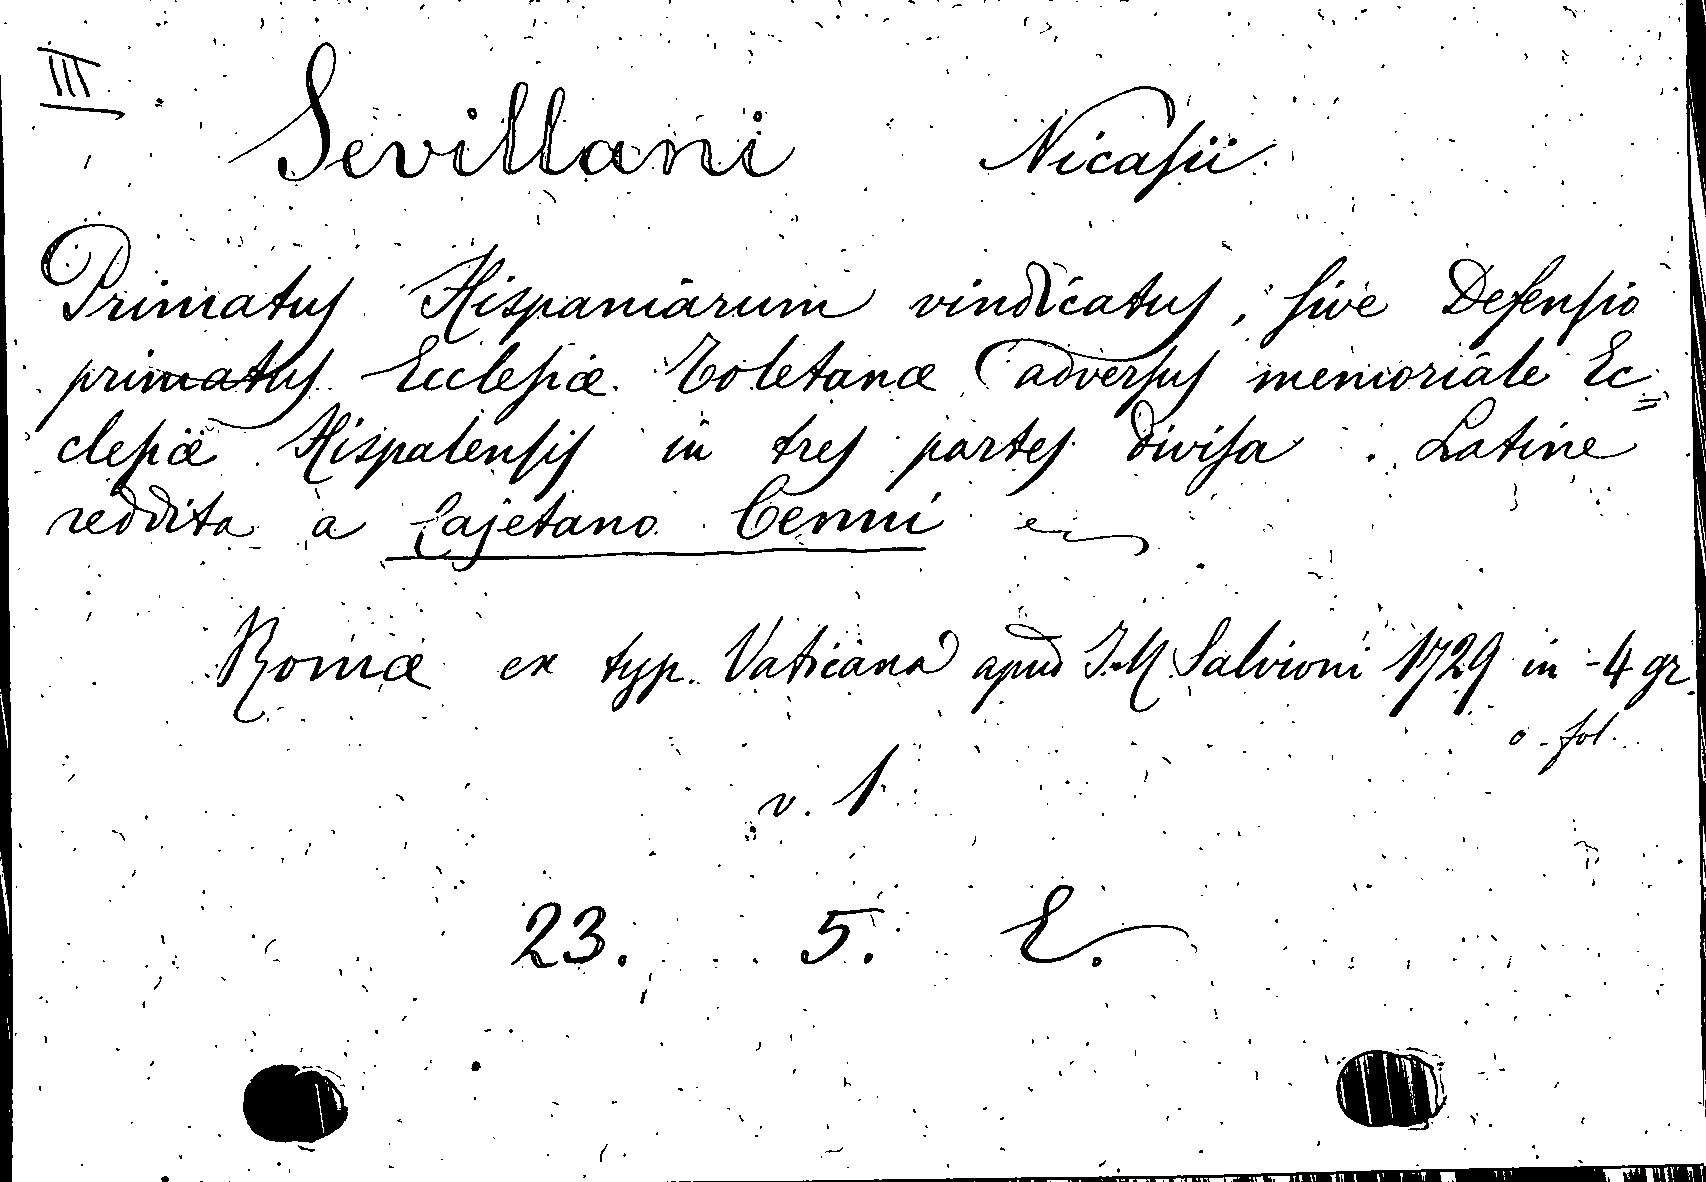 III
Sevillani Nicasii
Primatus Hispaniarum vindicatus, sive Defensio
primatus Ecclesiæ Toletanæ adversus memoriale Ec=
clesiæ Hispalensis in tres partes divisa. Latine
reddita a Cajetano Cenni
Romæ ex typ. Vaticana apud J. M. Salvioni 1729 in-4 gr.
o fol.
v. 1
23. 5. E.